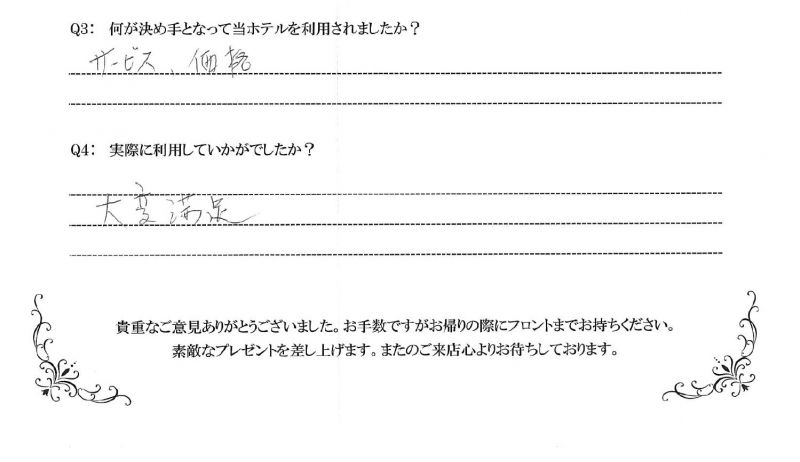 Q3: 何が決め手となって当ホテルを利用されましたか？
サービス、価格
Q4: 実際に利用していかがでしたか？
大変満足
貴重なご意見ありがとうございました。お手数ですがお帰りの際にフロントまでお持ちください。
素敵なプレゼントを差し上げます。またのご来店心よりお待ちしております。